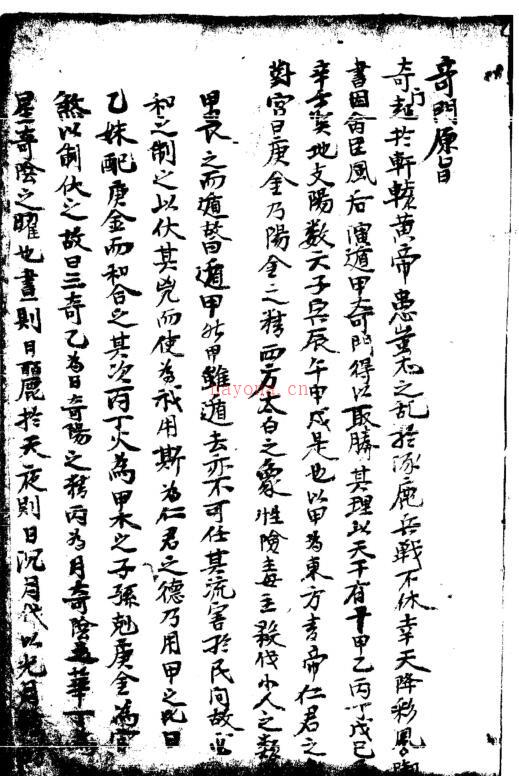 奇門原旨
奇門起於軒轅黃帝患蚩尤之亂於涿鹿兵戰不休幸天降彩鳳
書因命臣風后演遁甲奇門得以取勝其理以天干有十甲乙丙丁戊己
辛壬癸地支陽數六子寅辰午申戌是也以甲為東方青帝仁君之
對宮曰庚金乃陽金之精西方太白之象性險毒主殺伐小人之類
甲畏之而遁故曰遁甲然甲雖遁去亦不可任其流害於民间故
和之制之以伏其兇而使為我用斯為仁君之德乃用甲之
乙妹配庚金而和合之其次丙丁火為甲木之子孫剋庚金為
煞以制伏之故曰三奇乙為日奇陽之精丙為月奇陰華丁
星奇陰之曜也晝則日麗於天夜則日沉月代以光月
nayona.cn